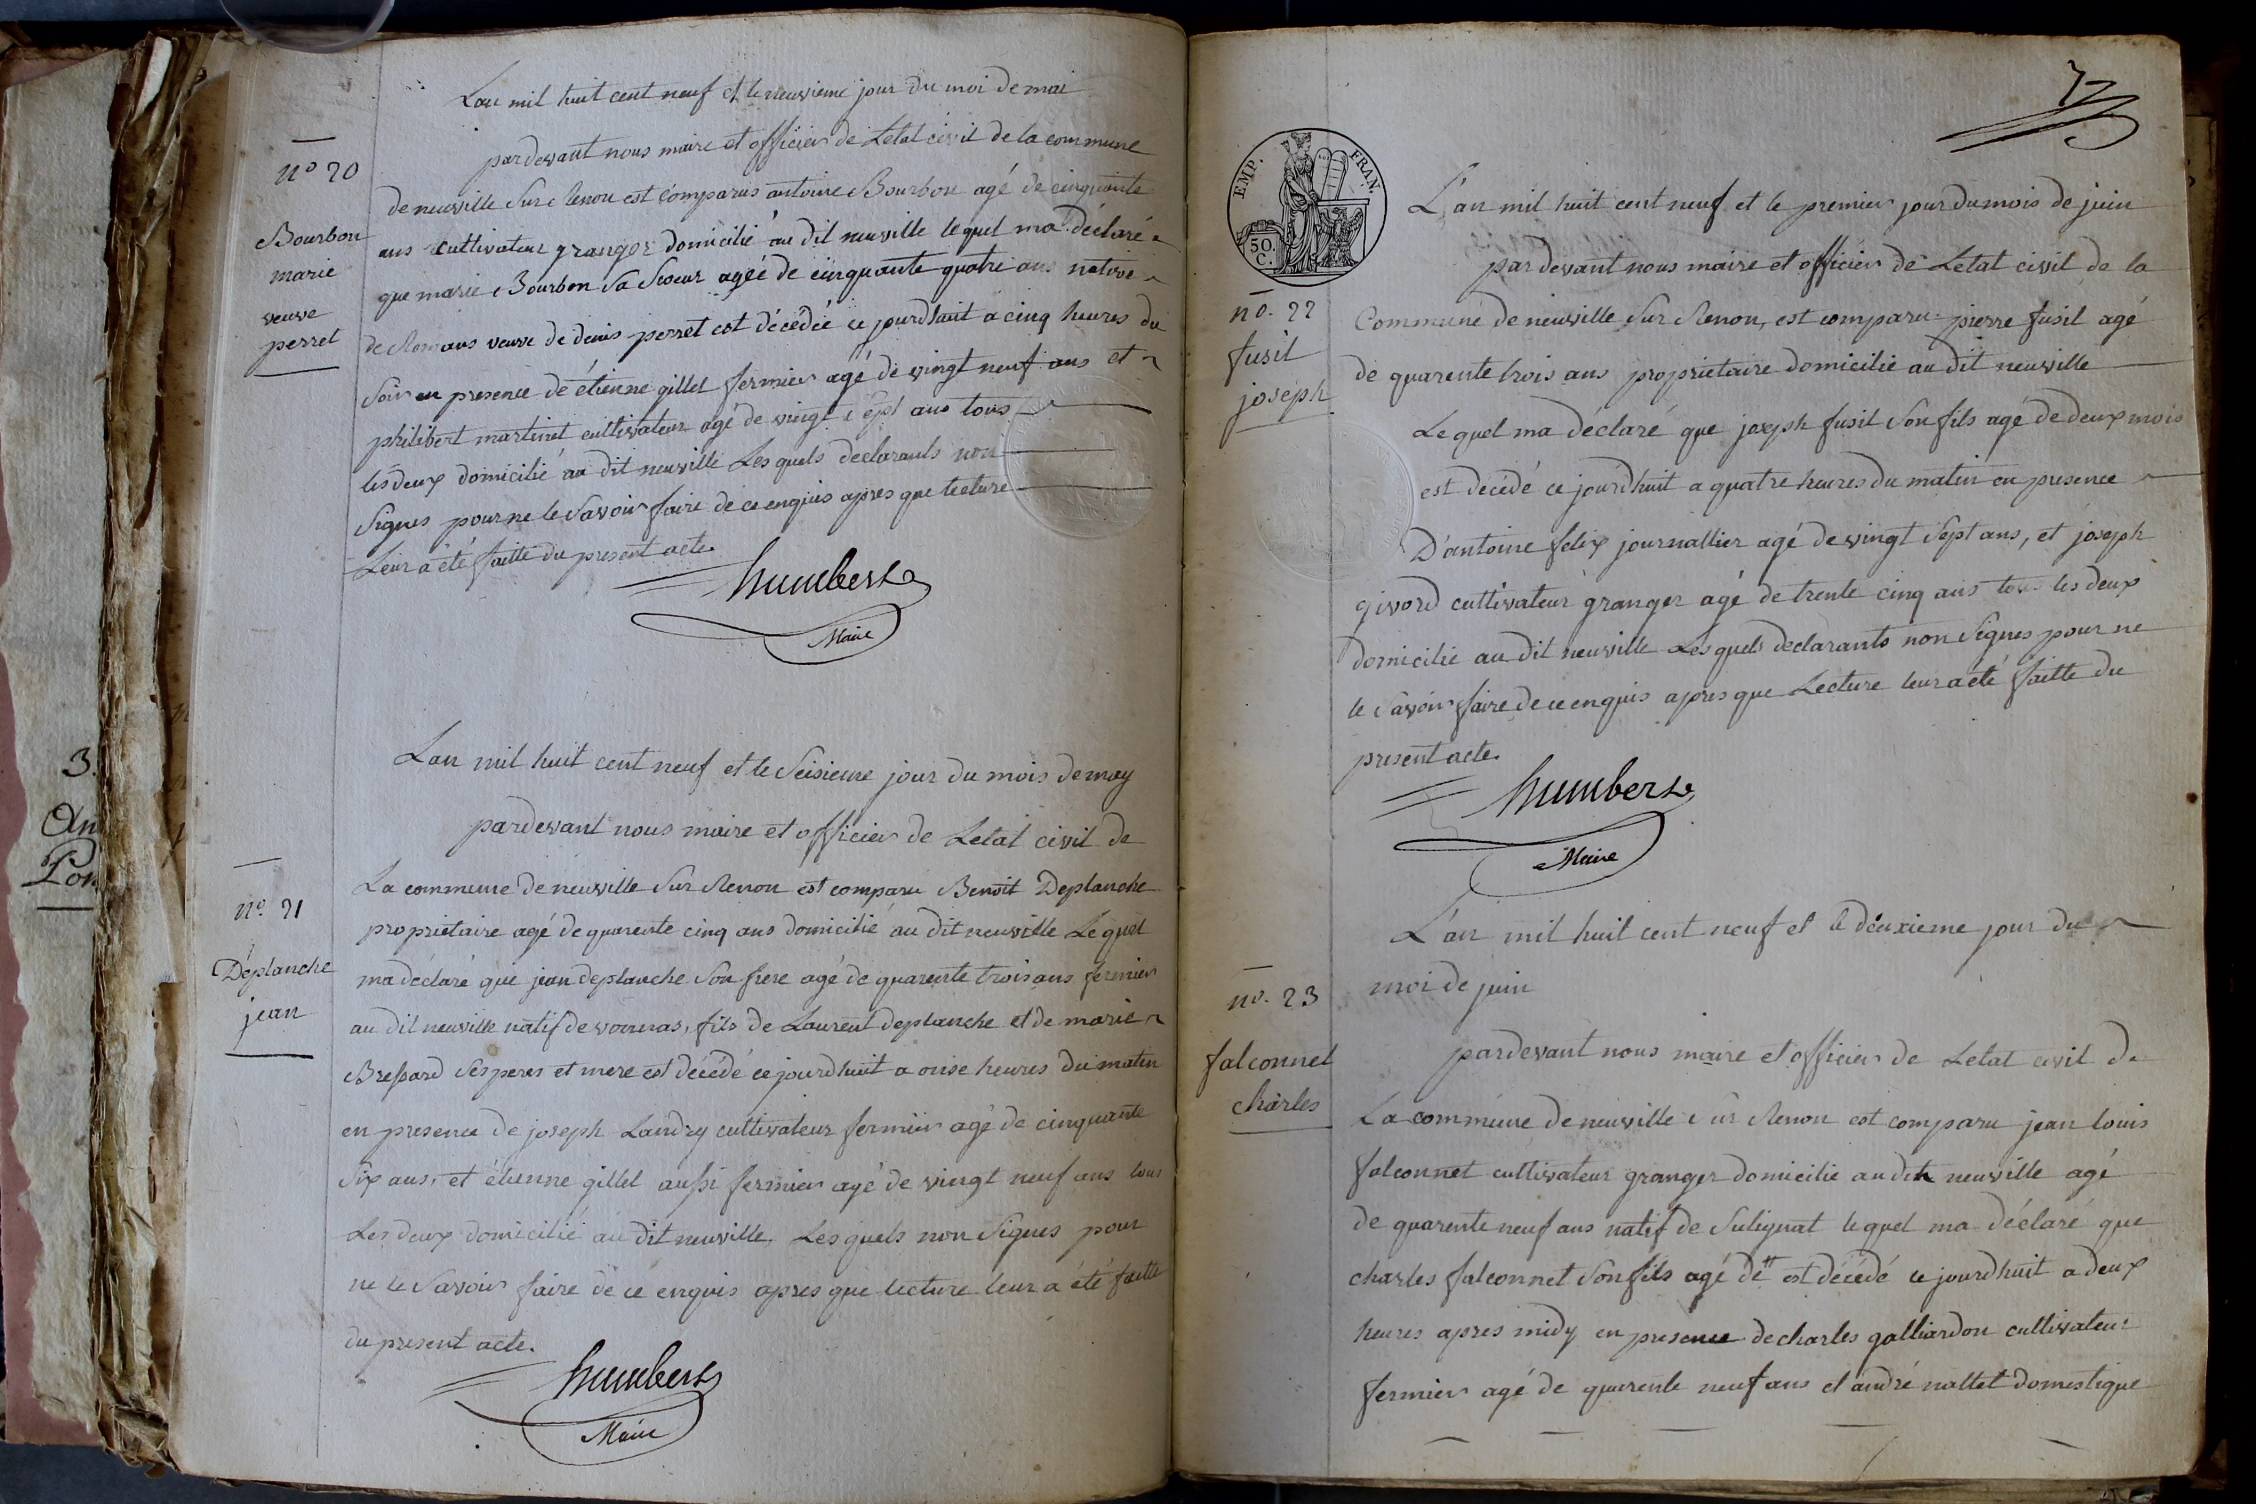 Lan mil huit cent neuf et le neuvieme jour du moi de mai
pardevant nous maire et officier de Letat civil de la commune
n° 20
de neuville Sur Renon est comparus antoine Bourbon agé de cinquante
Bourbon
marie
veuve
perret
ans cultivateur granger domicilié au dit neuville lequel ma déclaré
que marie Bourbon Sa Soeur agée de cinquante quatre ans native
de Romans veuve de denis perret est décédée ce jourdhuit a cinq heures du
Soir en presence de étienne gillet fermier agé de vingt neuf ans et
philibert martinet cultivateur agé de vingt Sept ans tous
les deux domicilié au dit neuville Les quels declarants non
Signes pour ne le Savoir faire de ce enquis apres que lecture
Leur a été faitte du present acte.
humbert
Maire
Lan mil huit cent neuf et le Seisieme jour du mois de may
pardevant nous maire et officier de Letat civil de
La commune de neuville Sur Renon est comparu Benoit Deplanche
n° 21
Deplanche
jean
propriétaire agé de quarente cinq ans domicilié au dit neuville Le quel
ma déclaré que jean deplanche Son frere agé de quarente trois ans fermier
au dit neuville natif de vonnas, fils de Laurent deplanche et de marie
Bressard Ses peres et mere est décédé ce jourdhuit a onse heures du matin
en presence de joseph Landry cultivateur fermier agé de cinquante
Six ans, et étienne gillet aussi fermier agé de vingt neuf ans tous
Les deux domicilié au dit neuville Les quels non Signes pour
ne le Savoir faire de ce enquis apres que lecture leur a été faitte
du present acte.
humbert
Maire
3.
An
Pon
EMP. FRAN.
50. C.
L'an mil huit cent neuf et le premier jour du mois de juin
pardevant nous maire et officier de Letat civil de la
n°. 22
fusil
joseph
Commune de neuville Sur Renon, est comparu pierre fusil agé
de quarente trois ans proprietaire domicilié au dit neuville
Le quel ma déclaré que joseph fusil Son fils agé de deux mois
est décédé ce jourdhuit a quatre heures du matin en presence
D'antoine felix journallier agé de vingt Sept ans, et joseph
givord cultivateur granger agé de trente cinq ans tous les deux
domicilié au dit neuville Les quels declarants non Signes pour ne
le Savoir faire de ce enquis apres que Lecture leur a été faitte du
present acte.
humbert
Maire
L'an mil huit cent neuf et le deuxieme jour du
moi de juin
n°. 23
falconnet
charles
pardevant nous maire et officier de Letat civil de
La commune de neuville Sur Renon est comparu jean louis
falconnet cultivateur granger domicilié au dit neuville agé
de quarente neuf ans natif de Sulignat le quel ma déclaré que
charles falconnet Son fils agé de est décédé ce jourdhuit a deux
heures apres midy en presence de charles galliardon cultivateur
fermier agé de quarente neuf ans et andré nallet domestique